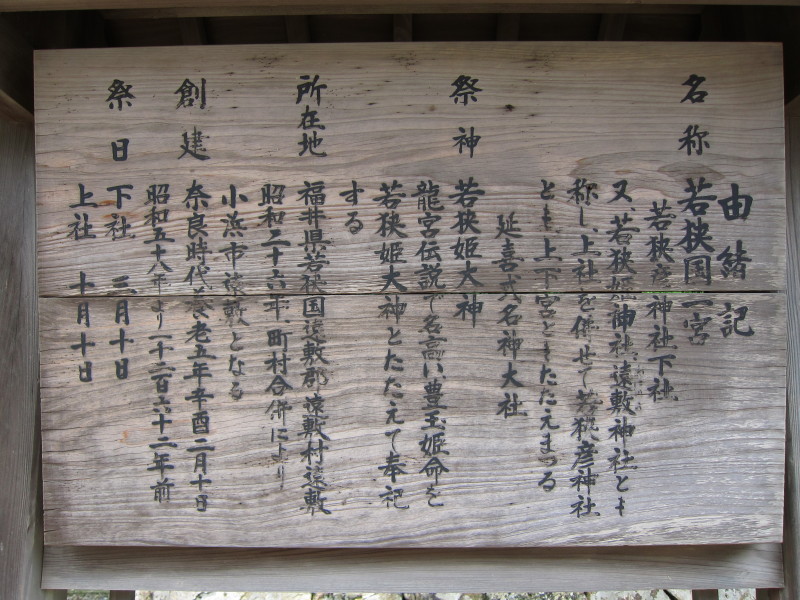 由緒記
名称 若狭国一宮
若狭彦神社下社
又、若狭姫神社、遠敷神社とも
称し、上社を併せて若狭彦神社
とも上下宮ともたたえまつる
延喜式名神大社
祭神 若狭姫大神
龍宮伝説で名高い豊玉姫命を
若狭姫大神とたたえて奉祀
する
所在地 福井県若狭国遠敷郡遠敷村遠敷
昭和二十六年町村合併により
小浜市遠敷となる
創建 奈良時代養老五年辛酉二月十日
昭和五十八年より一千二百六十二年前
祭日 下社 三月十日
上社 十月十日